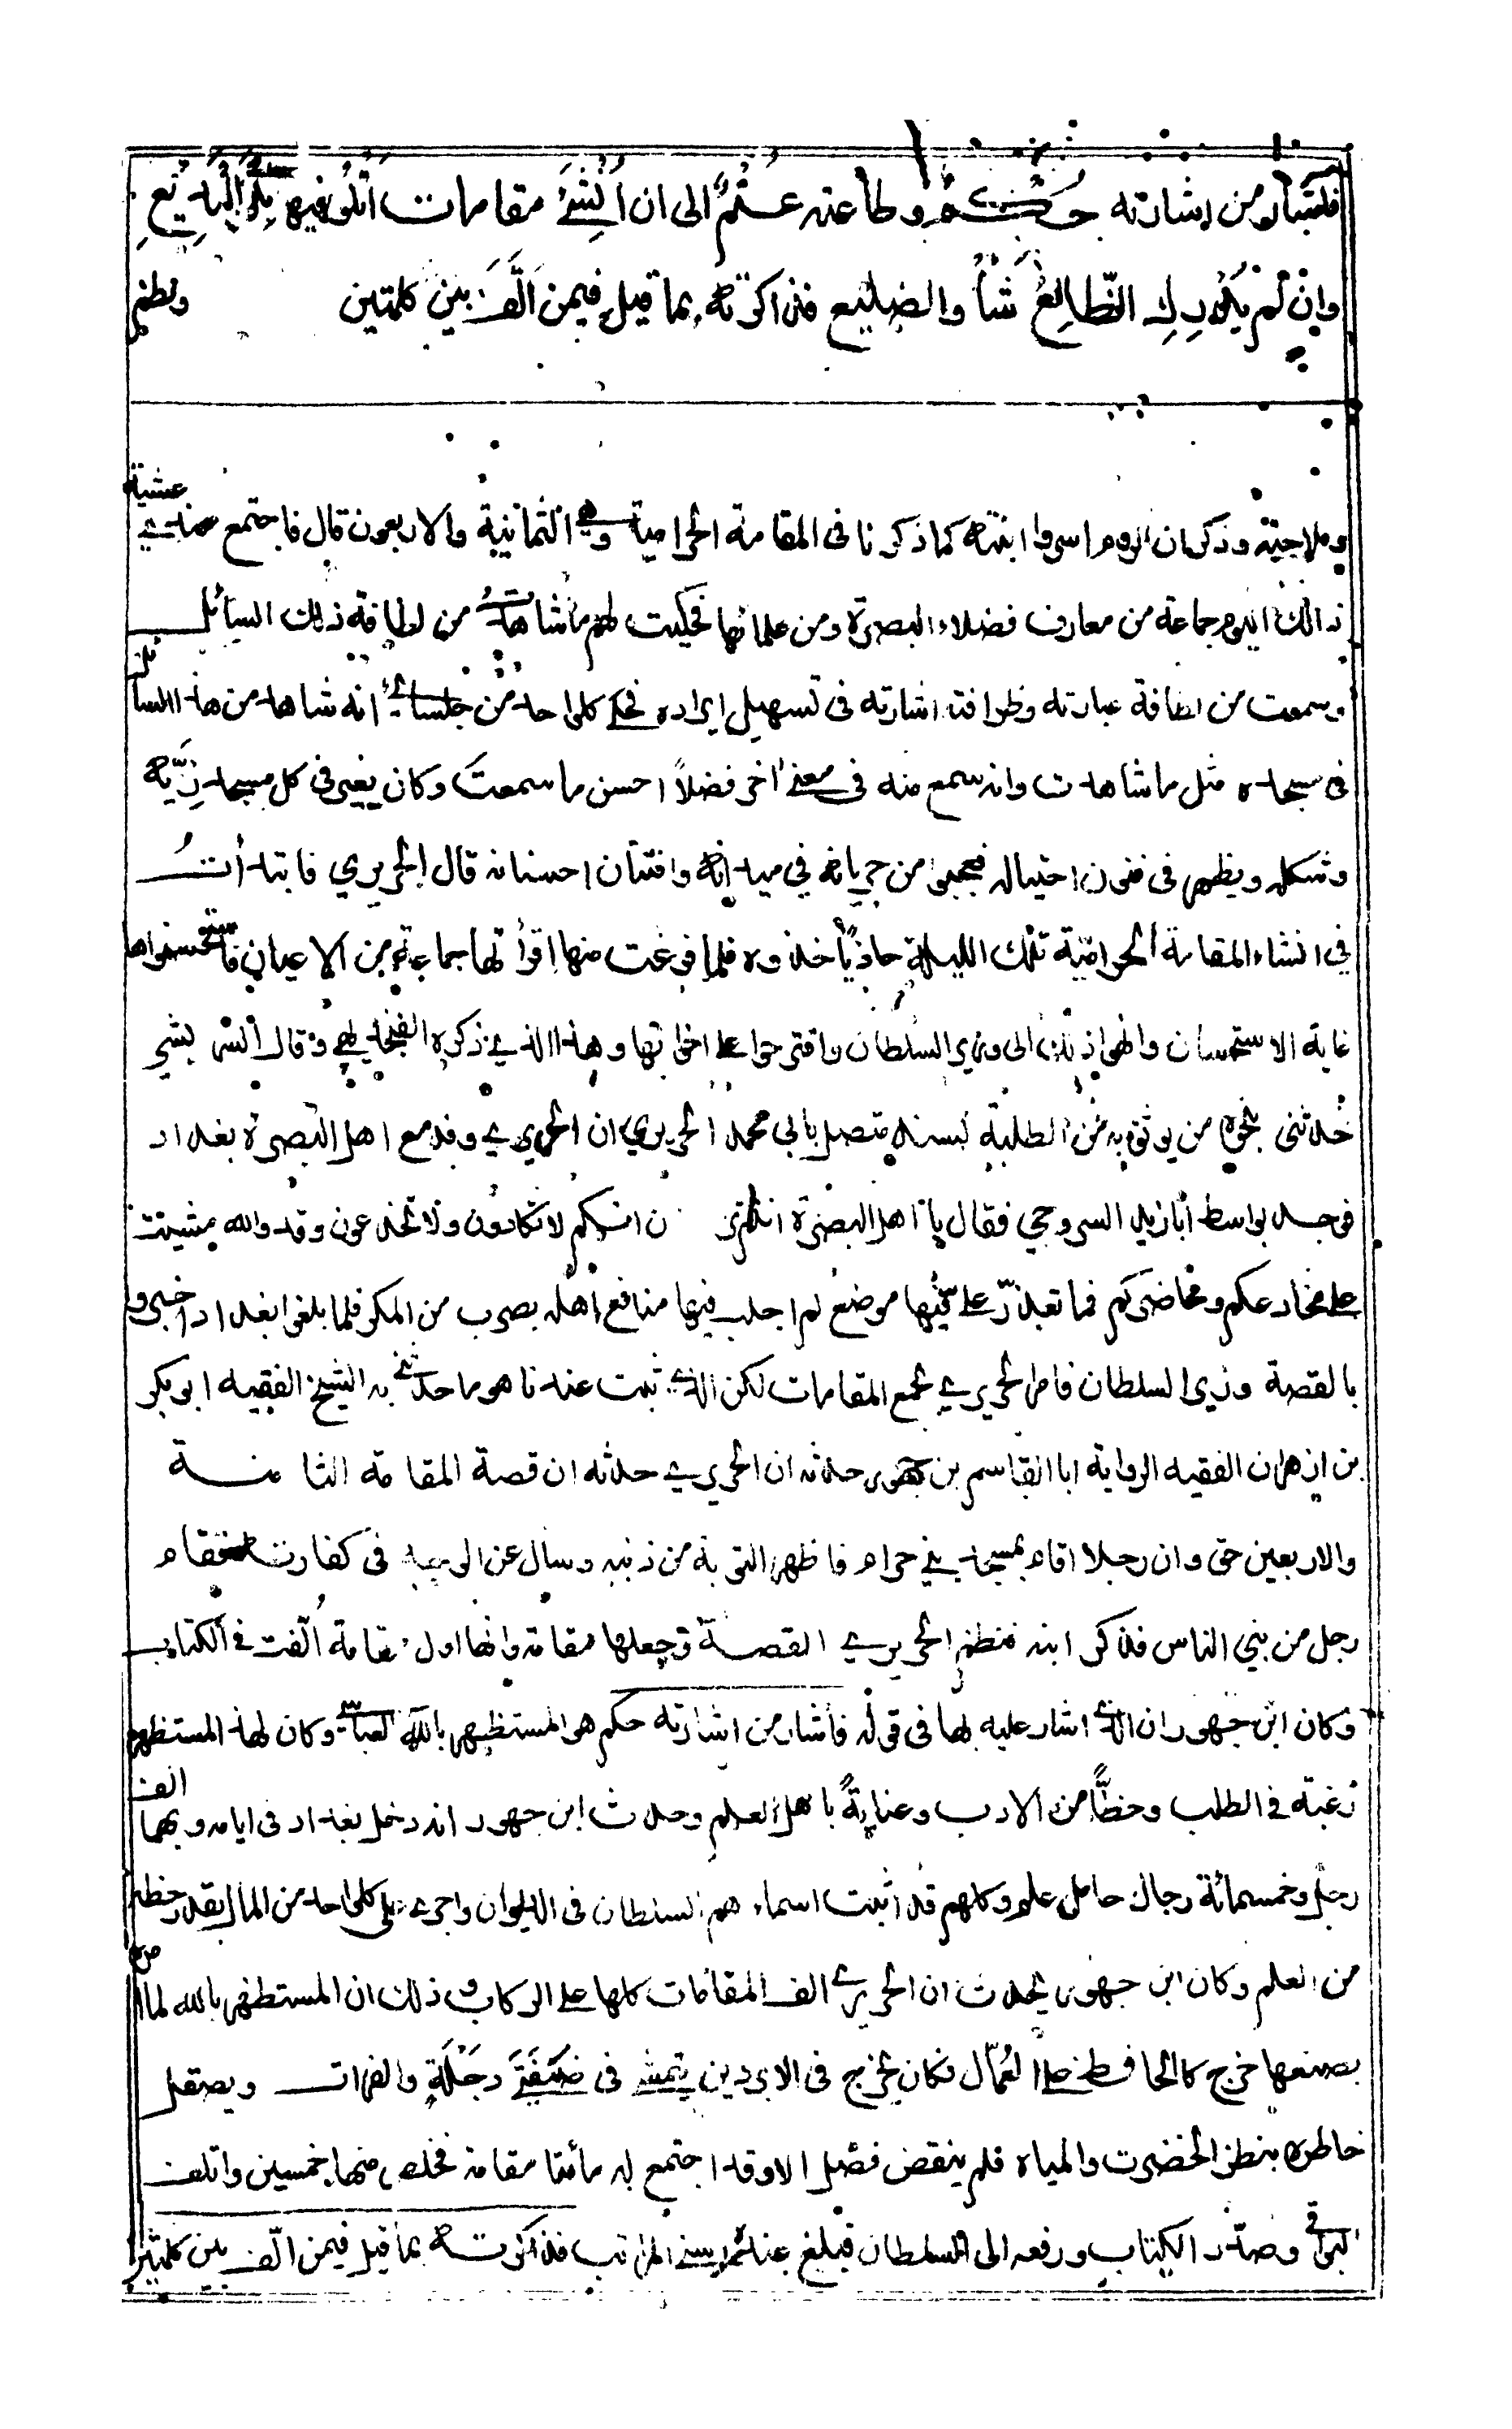 فاشار من اشارته حكم وطاعته غنم الى ان انشئ مقامات اتلو فيها تلو البديع
وان لم يدرك الظالع شأو الضليع فذاكرته بما قيل فيمن الف بين كلمتين ونظم
وملاحته وذكر ان الروم اسروا ابنته كما ذكرنا فى المقامة الحرامية وهى الثمانية والاربعون قال فاجتمع عندي عشية
ذالك اليوم جماعة من معارف فضلاء البصرة ومن علمائها فحكيت لهم ما شاهدت من لطافة ذلك السائل
وسمعت من لطافة عبارته وظرافة اشارته فى تسهيل ايراده فحكى كلواحد من جلسائى انه شاهد من هذا السائل
فى مسجده مثل ما شاهدت وانه سمع منه فى معنى اخر فضلاً احسن ما سمعت وكان يغير فى كل مسجد زيه
وشكله ويظهر فى فنون احتياله فعجبوا من جريانه في ميدانه وافتنان احسانه قال الحريري فابتدأت
في انشاء المقامة الحرامية تلك الليلة حاذياً حذوه فلما فرغت منها اقرأتها جماعة من الاعيان فاستحسنواها
غاية الاستحسان وانهوا ذلك الى وزير السلطان واقترحوا على اخواتها وهذا الذي ذكره الفنجديهي وقال الشريشي
حدثنى بنحوه من يوثق به من الطلبة بسند متصل بابى محمد الحريري ان الحريري وفد مع اهل البصرة بغداد
فوجد بواسط أبازيد السروجي فقال يا اهل البصرة ن انكم لا تكادون ولا تخدعون وقد والله مشيت
على مخادعكم ومحاضركم فما تعذر على فيها موضع لم اجلب فيها منافع اهله بصرب من المكر فلما بلغوا بغداد اخبروا
بالقصة وزير السلطان فامر الحريري بجمع المقامات لكن الذي ثبت عندنا هو ما حدثني به الشيخ الفقيه ابو بكر
بن ازهران الفقيه الرواية ابا القاسم بن جهور حدثه ان الحريري حدثه ان قصة المقامة الثامنة
والاربعين حق وان رجلا اقام بمسجد بني حرام فاظهر التوبة من ذنبه وسأل عن الوجه فى كفارته فقام
رجل من بني الناس فذكر ابنه فنظم الحريري القصة وجعلها مقامة وانها اول مقامة الفت في الكتاب
وكان ابن جهور ان الذي اشار عليه بها فى قوله فأشار من اشارته حكم هو المستظهر بالله العباسي وكان لهذ المستظهر
رغبة في الطلب وحظًّا من الادب وعنايةً باهل العلم وحدث ابن جهور انه دخل بغداد فى ايامه وبها الف
رجل وخمسمائة رجال حامل علم وكلهم قد اثبت اسماءهم السلطان فى الديوان واجرى على كلواحد من المال بقدر حظه
من العلم وكان ابن جهور يحدث ان الحريري الف المقامات كلها على الركاب وذلك ان المستظهر بالله لما امره
بصنعها خرج كالحافظ على العمال فكان يخرج فى الابردين يتمشى فى ضفتى دجلة والفرات ويصقل
خاطره بنظر الخضرت والمياه فلم ينقض فصل الا وقد اجتمع له مائتا مقامة فخلص منها خمسين واتلف
البواقى وصدّر الكتاب ورفعه الى السلطان فبلغ عنده اسنى المراتب فذاكرته بما قيل فيمن الف بين كلمتين